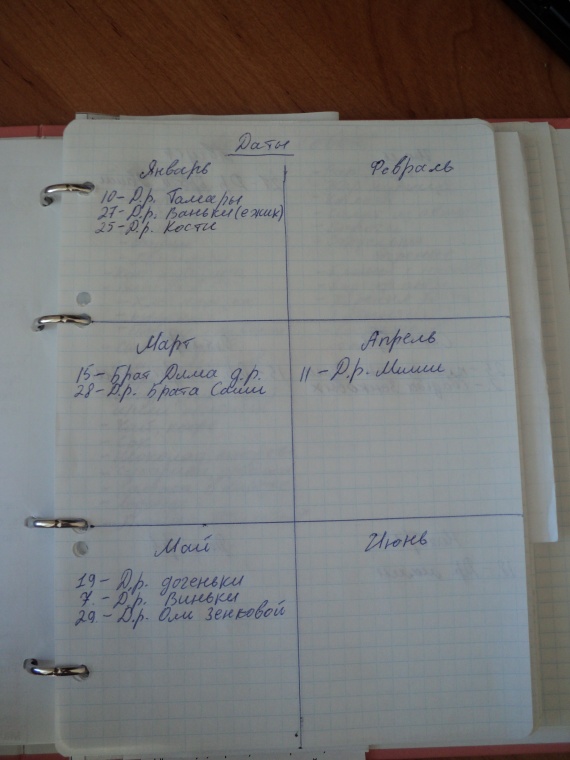 Даты
Январь
10- Д.р. Тамары
27- Д.р. Ваньки (ежик)
25- Д.р. Кости
Февраль
Март
15- Брат Дима д.р.
28- Д.р. Брата Саши
Апрель
11 - Д.р. Миши
Май
19- Д.р. доченьки
7- Д.р. Виньки
29- Д.р. Оли Зенковой
Июнь